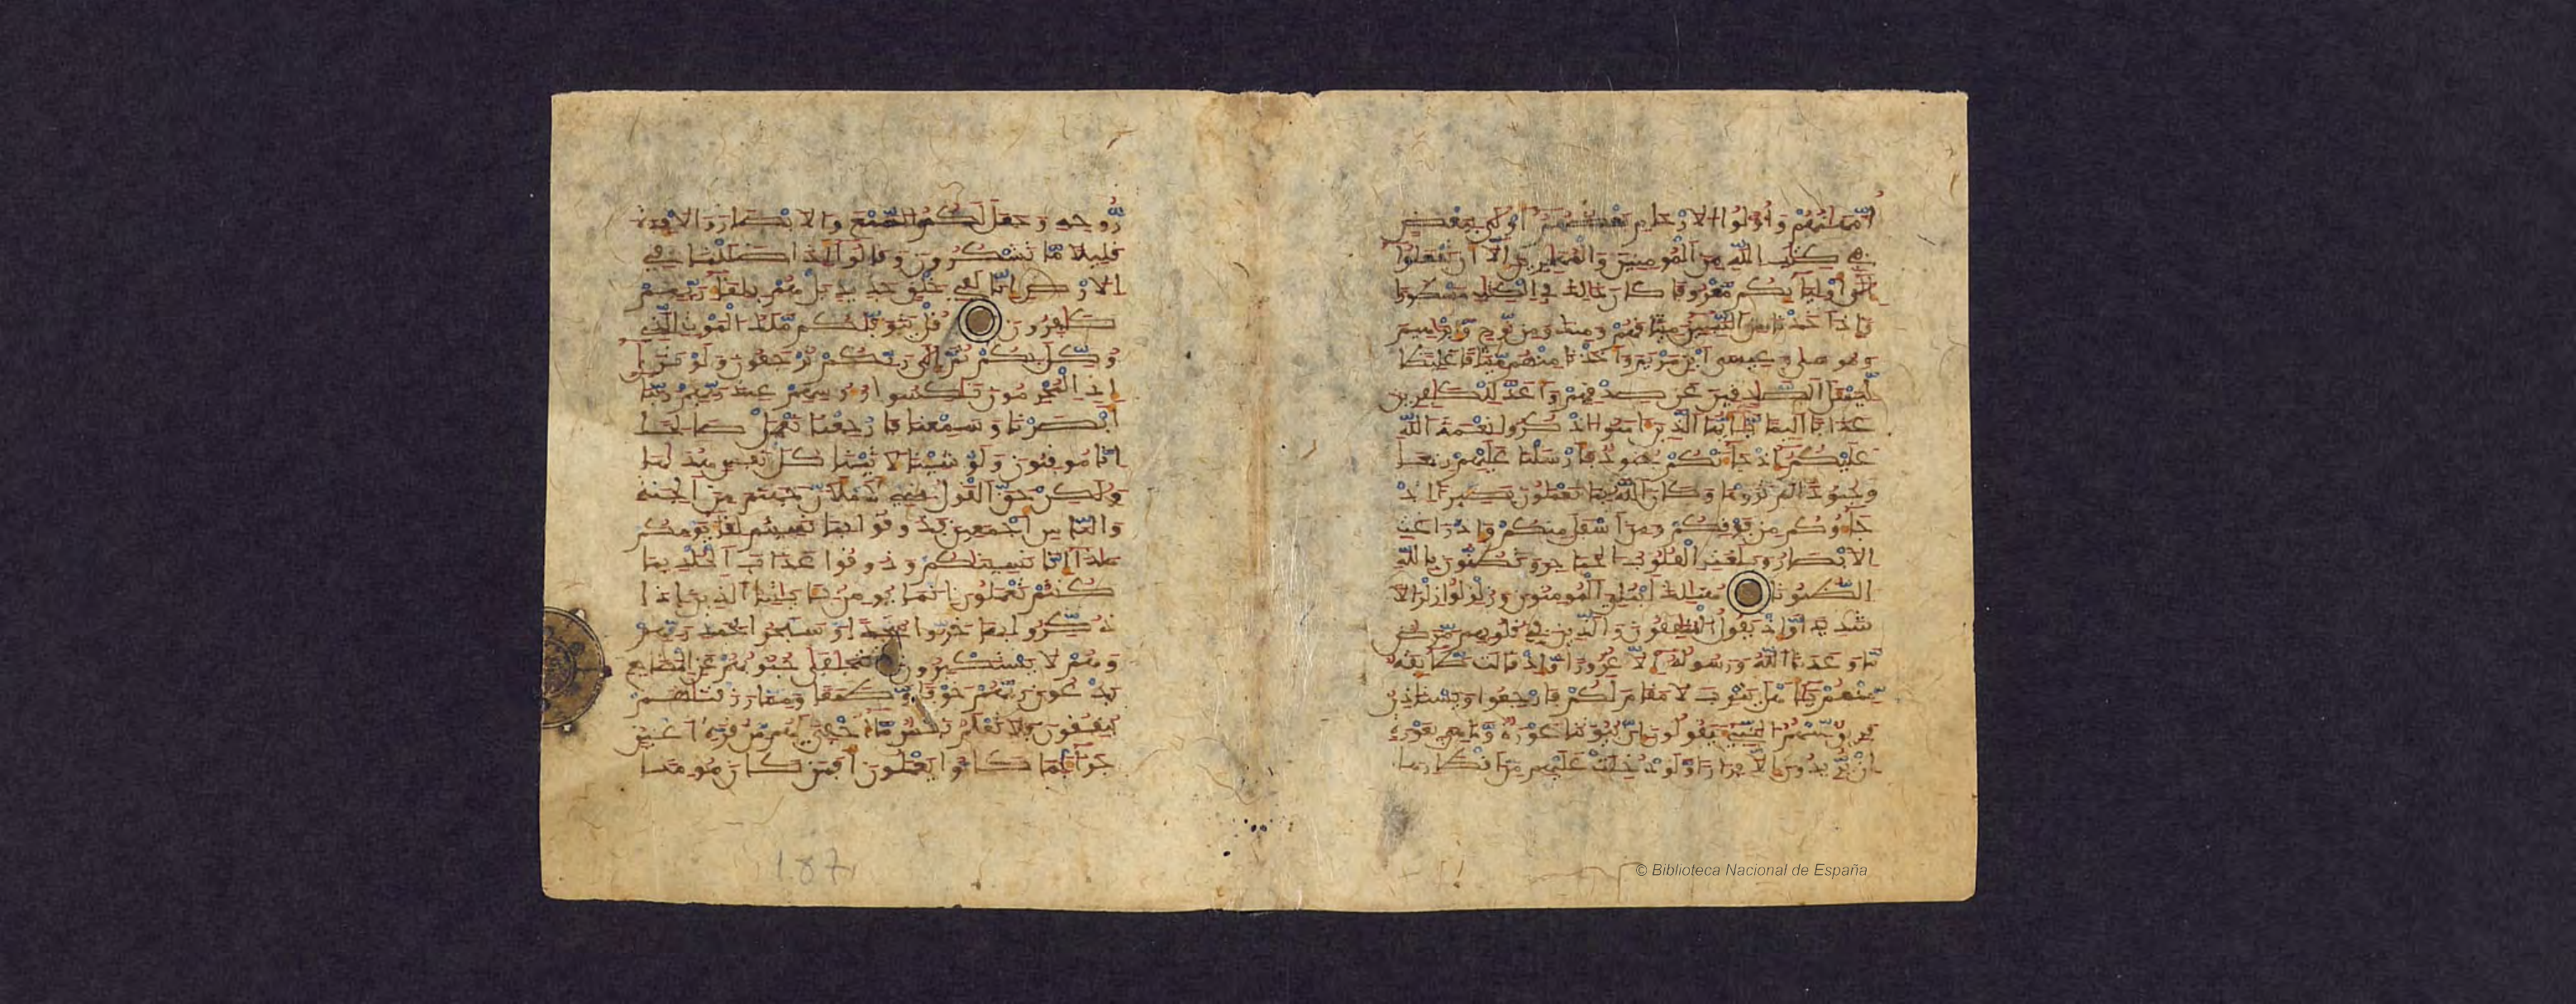 أمهاتهم وأولوا الأرحام بعضهم أولى ببعض
في كتب الله من المومنين والمهجرين إلا أن تفعلوا
إلى أوليائكم معروفا كان ذلك في الكتب مسطورا
وإذ أخذنا من النبيين ميثقهم ومنك ومن نوح وإبرهيم
وموسى وعيسى ابن مريم وأخذنا منهم ميثقا غليظا
ليسئل الصدقين عن صدقهم وأعد للكفرين
عذابا أليما يأيها الذين ءامنوا اذكروا نعمة الله
عليكم إذ جاءتكم جنود فأرسلنا عليهم ريحا
وجنودا لم تروها وكان الله بما تعملون بصيرا إذ
جاءوكم من فوقكم ومن أسفل منكم وإذ زاغت
الأبصر وبلغت القلوب الحناجر وتظنون بالله
الظنونا هنالك ابتلي المومنون وزلزلوا زلزالا
شديدا وإذ يقول المنفقون والذين في قلوبهم مرض
ما وعدنا الله ورسوله إلا غرورا وإذ قالت طائفة
منهم يأهل يثرب لا مقام لكم فارجعوا ويستاذن
فريق منهم النبيء يقولون إن بيوتنا عورة وما هي بعورة
إن يريدون إلا فرارا ولو دخلت عليهم من أقطارها
روحه وجعل لكم السمع والأبصار والأفئدة
قليلا ما تشكرون وقالوا أءذا ضللنا في
الأرض إنا لفي خلق جديد بل هم بلقاء ربهم
كافرون قل يتوفاكم ملك الموت الذي
وكل بكم ثم إلى ربكم ترجعون ولو ترى
إذ المجرمون ناكسوا رءوسهم عند ربهم ربنا
أبصرنا وسمعنا فارجعنا نعمل صالحا
إنا موقنون ولو شئنا لأتينا كل نفس هداها
ولكن حق القول مني لأملأن جهنم من الجنة
والناس أجمعين فذوقوا بما نسيتم لقاء يومكم
هذا إنا نسيناكم وذوقوا عذاب الخلد بما
كنتم تعملون إنما يومن بأياتنا الذين إذا
ذكروا بها خروا سجدا وسبحوا بحمد ربهم
وهم لا يستكبرون تتجافى جنوبهم عن المضاجع
يدعون ربهم خوفا وطمعا ومما رزقناهم
ينفقون فلا تعلم نفس ما أخفي لهم من قرة أعين
جزاء بما كانوا يعملون أفمن كان مومنا
187
© Biblioteca Nacional de España